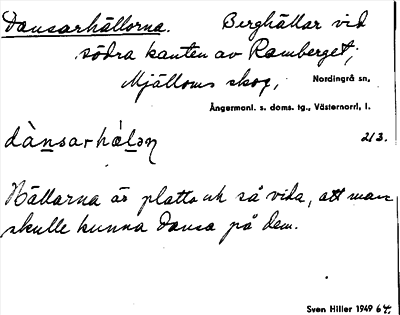 Dansarhällorna. Berghällar vid
södra kanten av Ramberget,
Mjälloms skog, Nordingrå sn,
Ångermanl. s. doms. tg., Västernorrl. l.
dànsarhæ̀lən 2/3.
Hällarna är platta och så vida, att man
skulle kunna dansa på dem.
Sven Hiller 1949